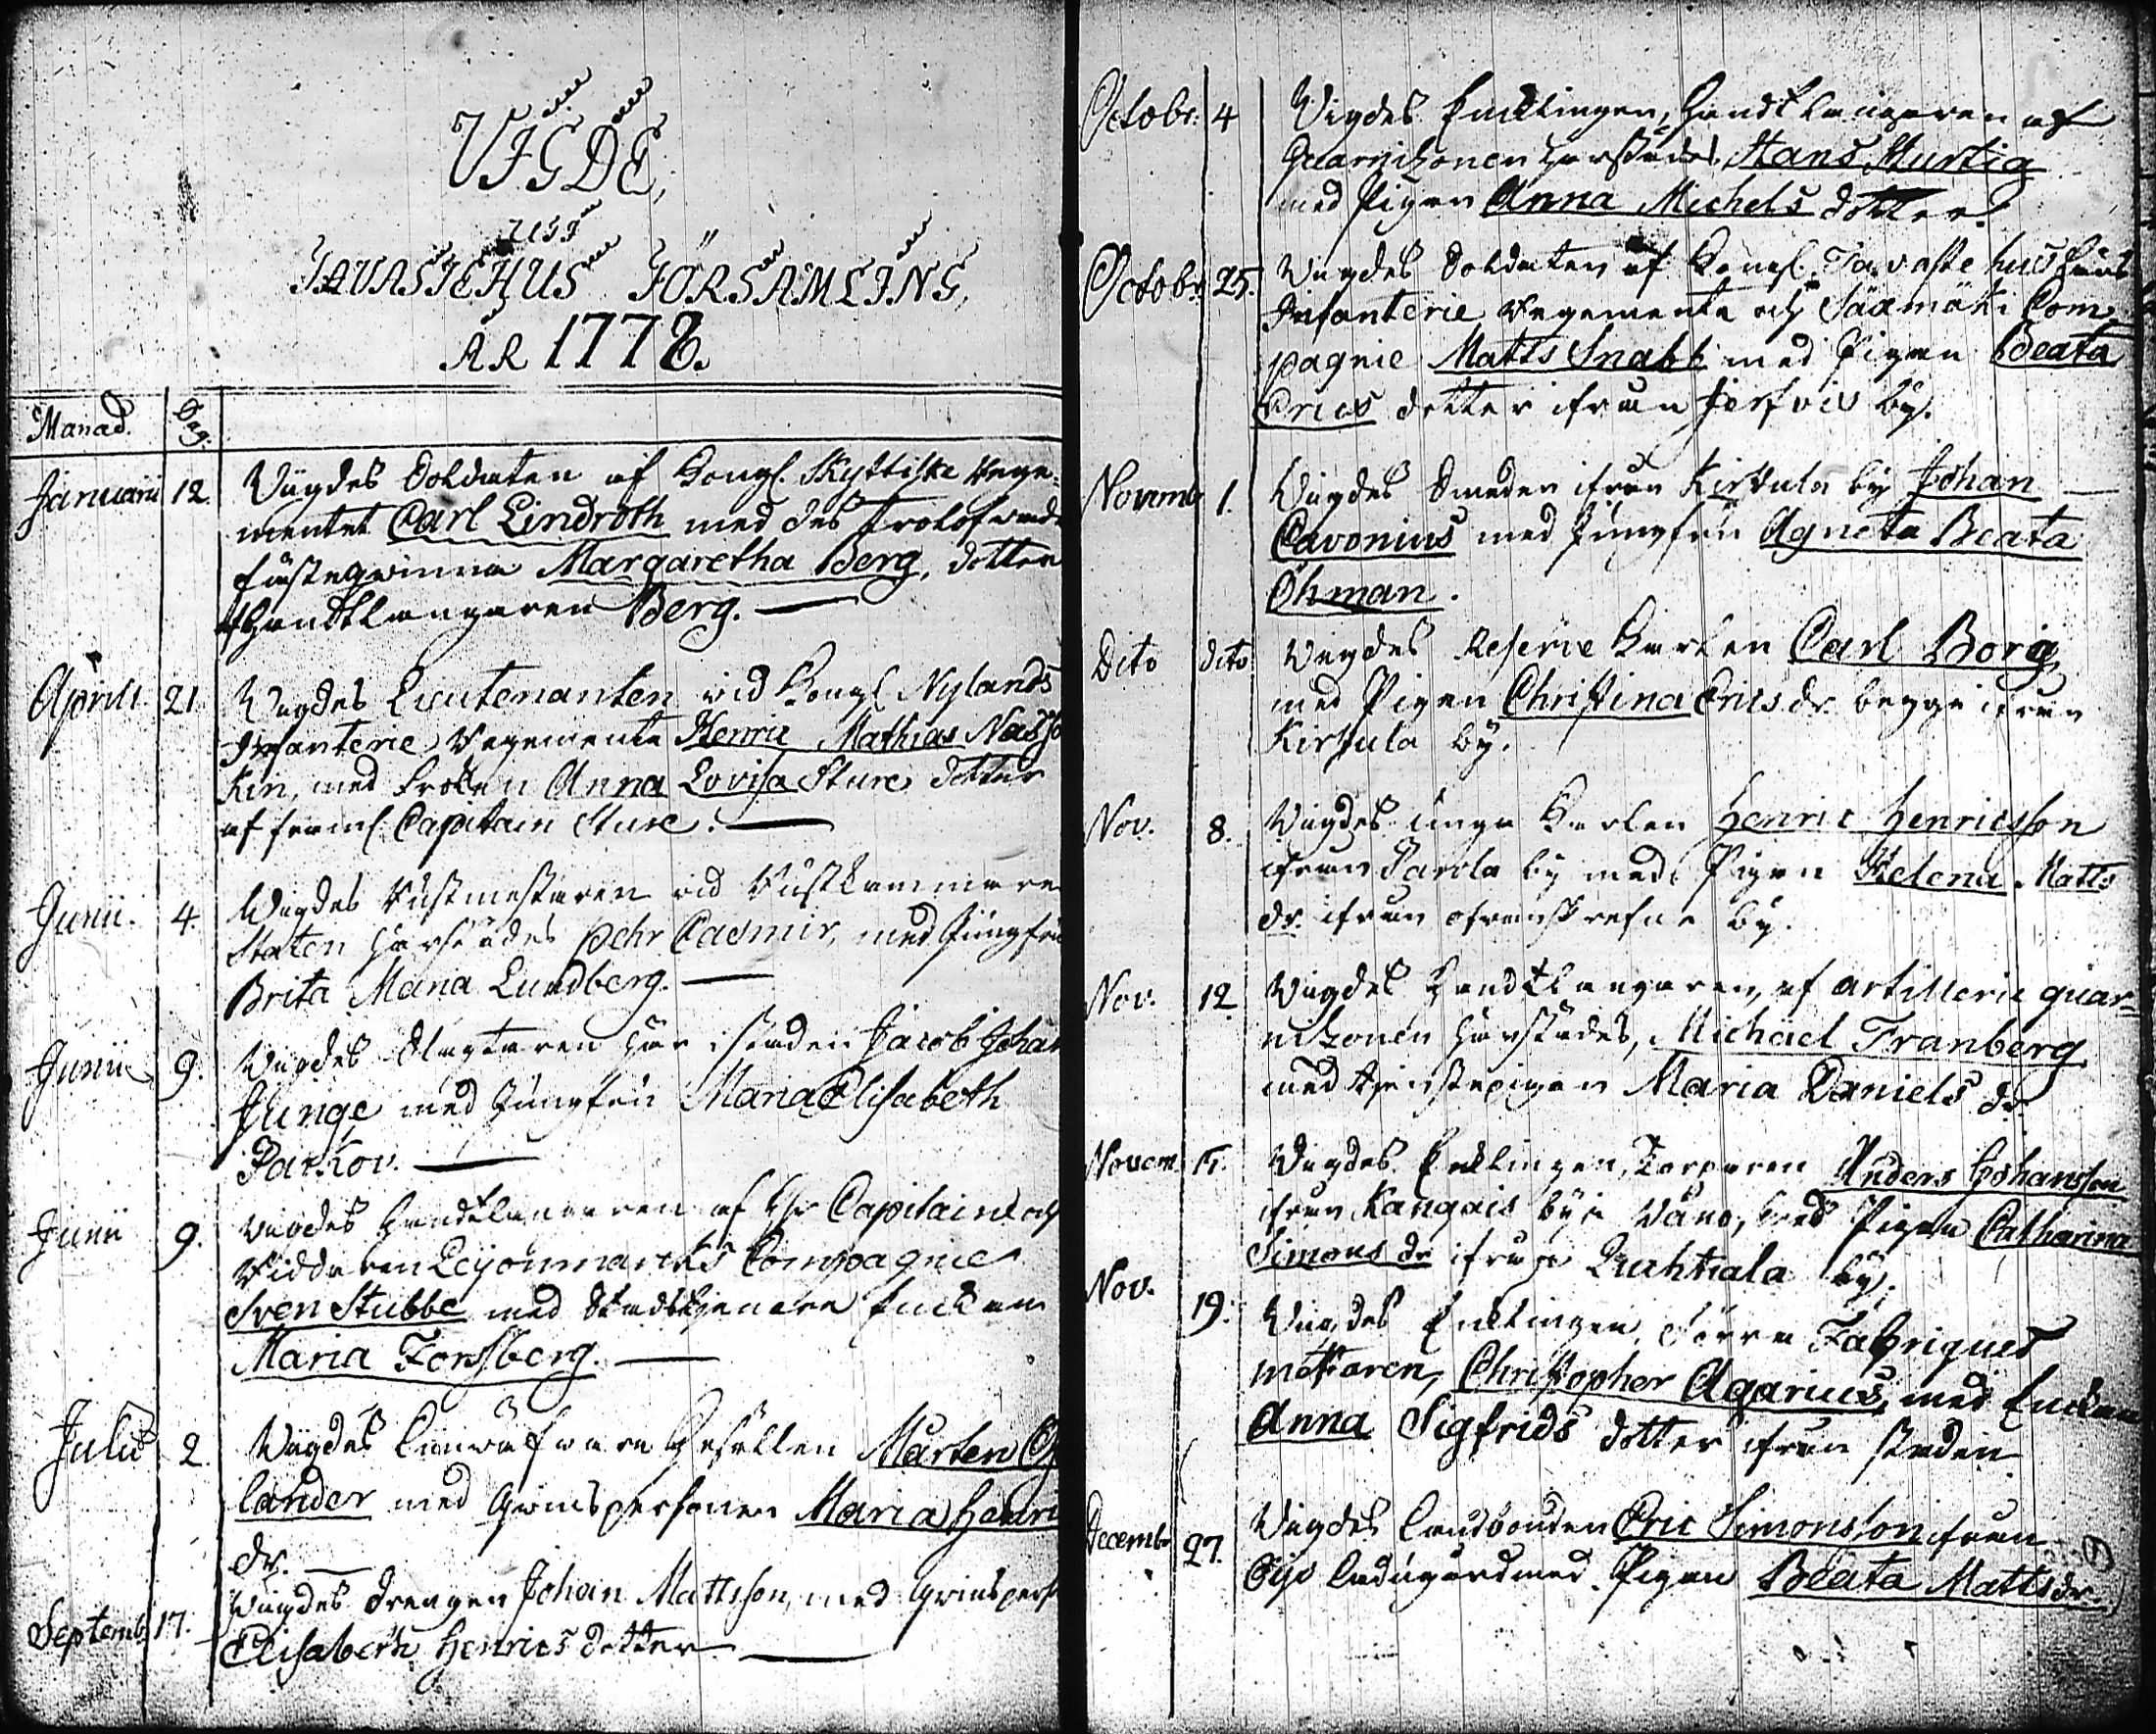 VIGDE,
uti
TAVASTEHUS FÖRSAMLING,
ÅR 1778.
Månad. Dag.
Januarii 12. Wigdes Soldaten af Kongl. Skyttiska Rege-
mentet Carl Lindroth med des trolofvade
fästeqwinna Margaretha Berg, dotter
af Handtlangaren Berg.
Aprill. 21 Wigdes Lieutenanten vid Kongl. Nylands
Infanterie Regemente Henric Mathias
med Fröken Anna Lovisa Sture dotter
af framl. Capitain Sture.
Junii. 4. Wigdes Rustmestaren vid Rustkammare
Staten härstädes Pehr Casmir, med Jungfru
Brita Maria Lundberg.
Junii 9. Wigdes Slagtaren här i staden Jacob Johan
Junge med Jungfru Maria Elisabeth
Paikov.
Junii 9. Wigdes Handtlangaren af Hr Capitains och
Riddaren Leijonmarcks Compagnie
Sven Stubbe med Stadstjenare Enckan
Maria Forssberg.
Julii 2. Wigdes Gesällen Mårten
lander med Qwinspersonen Maria Henri
dr.
Septemb. 17. Wigdes Drengen Johan Mattsson, med Qwinspers
Elisabeth Henrics dotter
Octobr. 4 Wigdes Encklingen, Handtlangaren af
Guarnizonen härstädes Hans Hurtig
med Pigan Anna Michels dotter.
Octobr. 25. Wigdes Soldaten af Kongl. Tavastehus Läns
Infanterie Regemente och Säxmäki Com-
pagnie Matts Snabb med Pigan Beata
Erics dotter ifrån Jerfvis by.
Novemb. 1. Wigdes Smeden ifrån Kirstula by Johan
Cavonius med Jungfru Agneta Beata
Öhman.
Dito dito Wigdes Reserve Karlen Carl Borg
med Pigan Christina Erics dr. begge ifrån
Kirstula by.
Nov. 8. Wigdes unga Karlen Henric Henricsson
ifrån Parola by med Pigan Helena Matts
dr. ifrån ofvanskrefne by.
Nov. 12 Wigdes Handtlangaren, af Artillerie guar-
nizonen härstädes, Michäel Franberg
med tjenstepigan Maria Daniels dr.
Novem. 15. Wigdes Encklingen, Torparen Anders Johansson
ifrån Kangais by i Wånå, med Pigan Catharina
Simons dr ifrån Luhtiala by.
Nov. 19. Wigdes Encklingen, förra Fabriques
mästaren, Christopher Agarius, med Enckan
Anna Sigfrids dotter ifrån staden
Decembr 27. Wigdes Landbonden Eric Simonsson ifrån
Öijo ladugård med Pigan Beata Mattsdr.